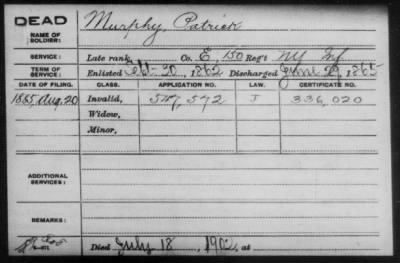 DEAD
NAME OF SOLDIER: Murphy, Patrick
SERVICE: Late rank, Co. E, 150 Reg't NY Inf.
TERM OF SERVICE: Enlisted Sept. 20, 1862 Discharged June , 1865
DATE OF FILING. CLASS. APPLICATION NO. LAW. CERTIFICATE NO.
1885, Aug. 20 Invalid, 547,572 J 336,020
Widow,
Minor,
ADDITIONAL SERVICES:
REMARKS:
Died July 18, 190 , at